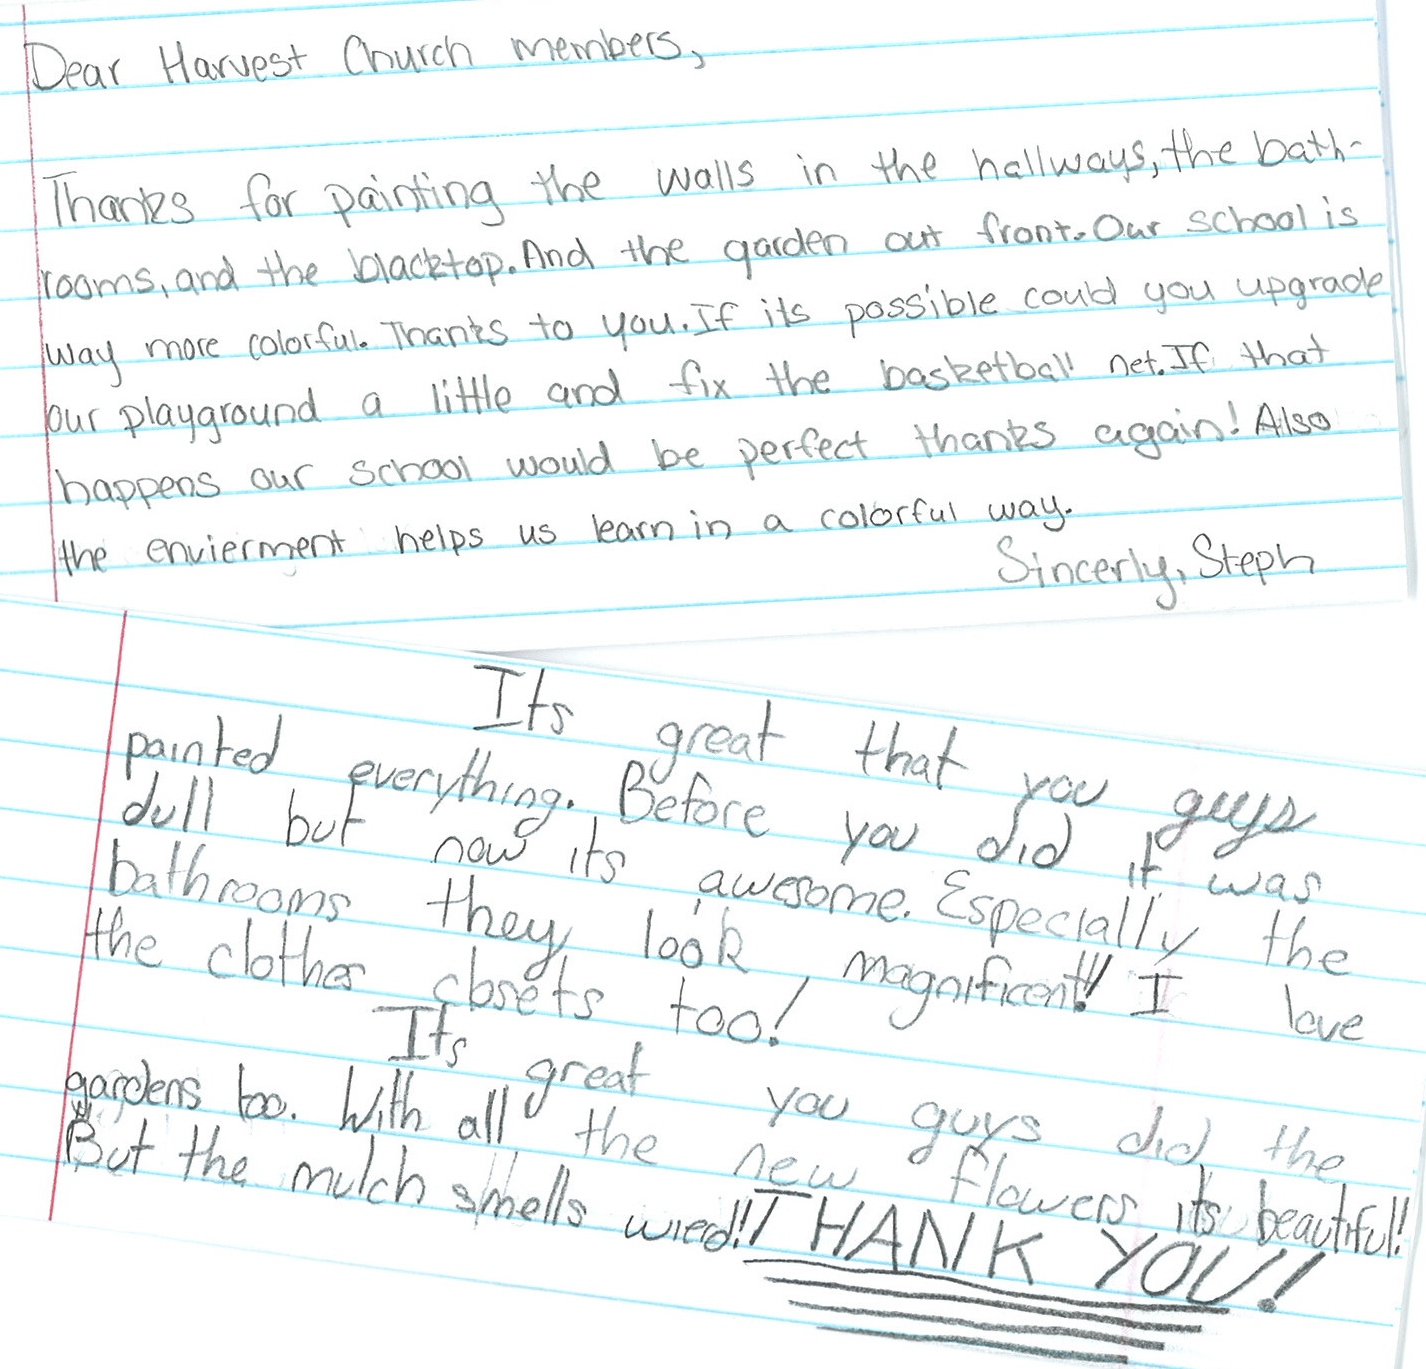 Dear Harvest Church members,
Thanks for painting the walls in the hallways, the bath-
rooms, and the blacktop. And the garden out front. Our school is
way more colorful. Thanks to you. If its possible could you upgrade
our playground a little and fix the basketball net. If that
happens our school would be perfect thanks again! Also
the envierment helps us learn in a colorful way.
Sincerly, Steph
Its great that you guys
painted everything. Before you did it was
dull but now its awesome. Especially the
bathrooms they look magnificent!! I love
the clothes closets too!
Its great you guys did the
gardens too. With all the new flowers its beautiful!
But the mulch smells wierd!! THANK YOU!